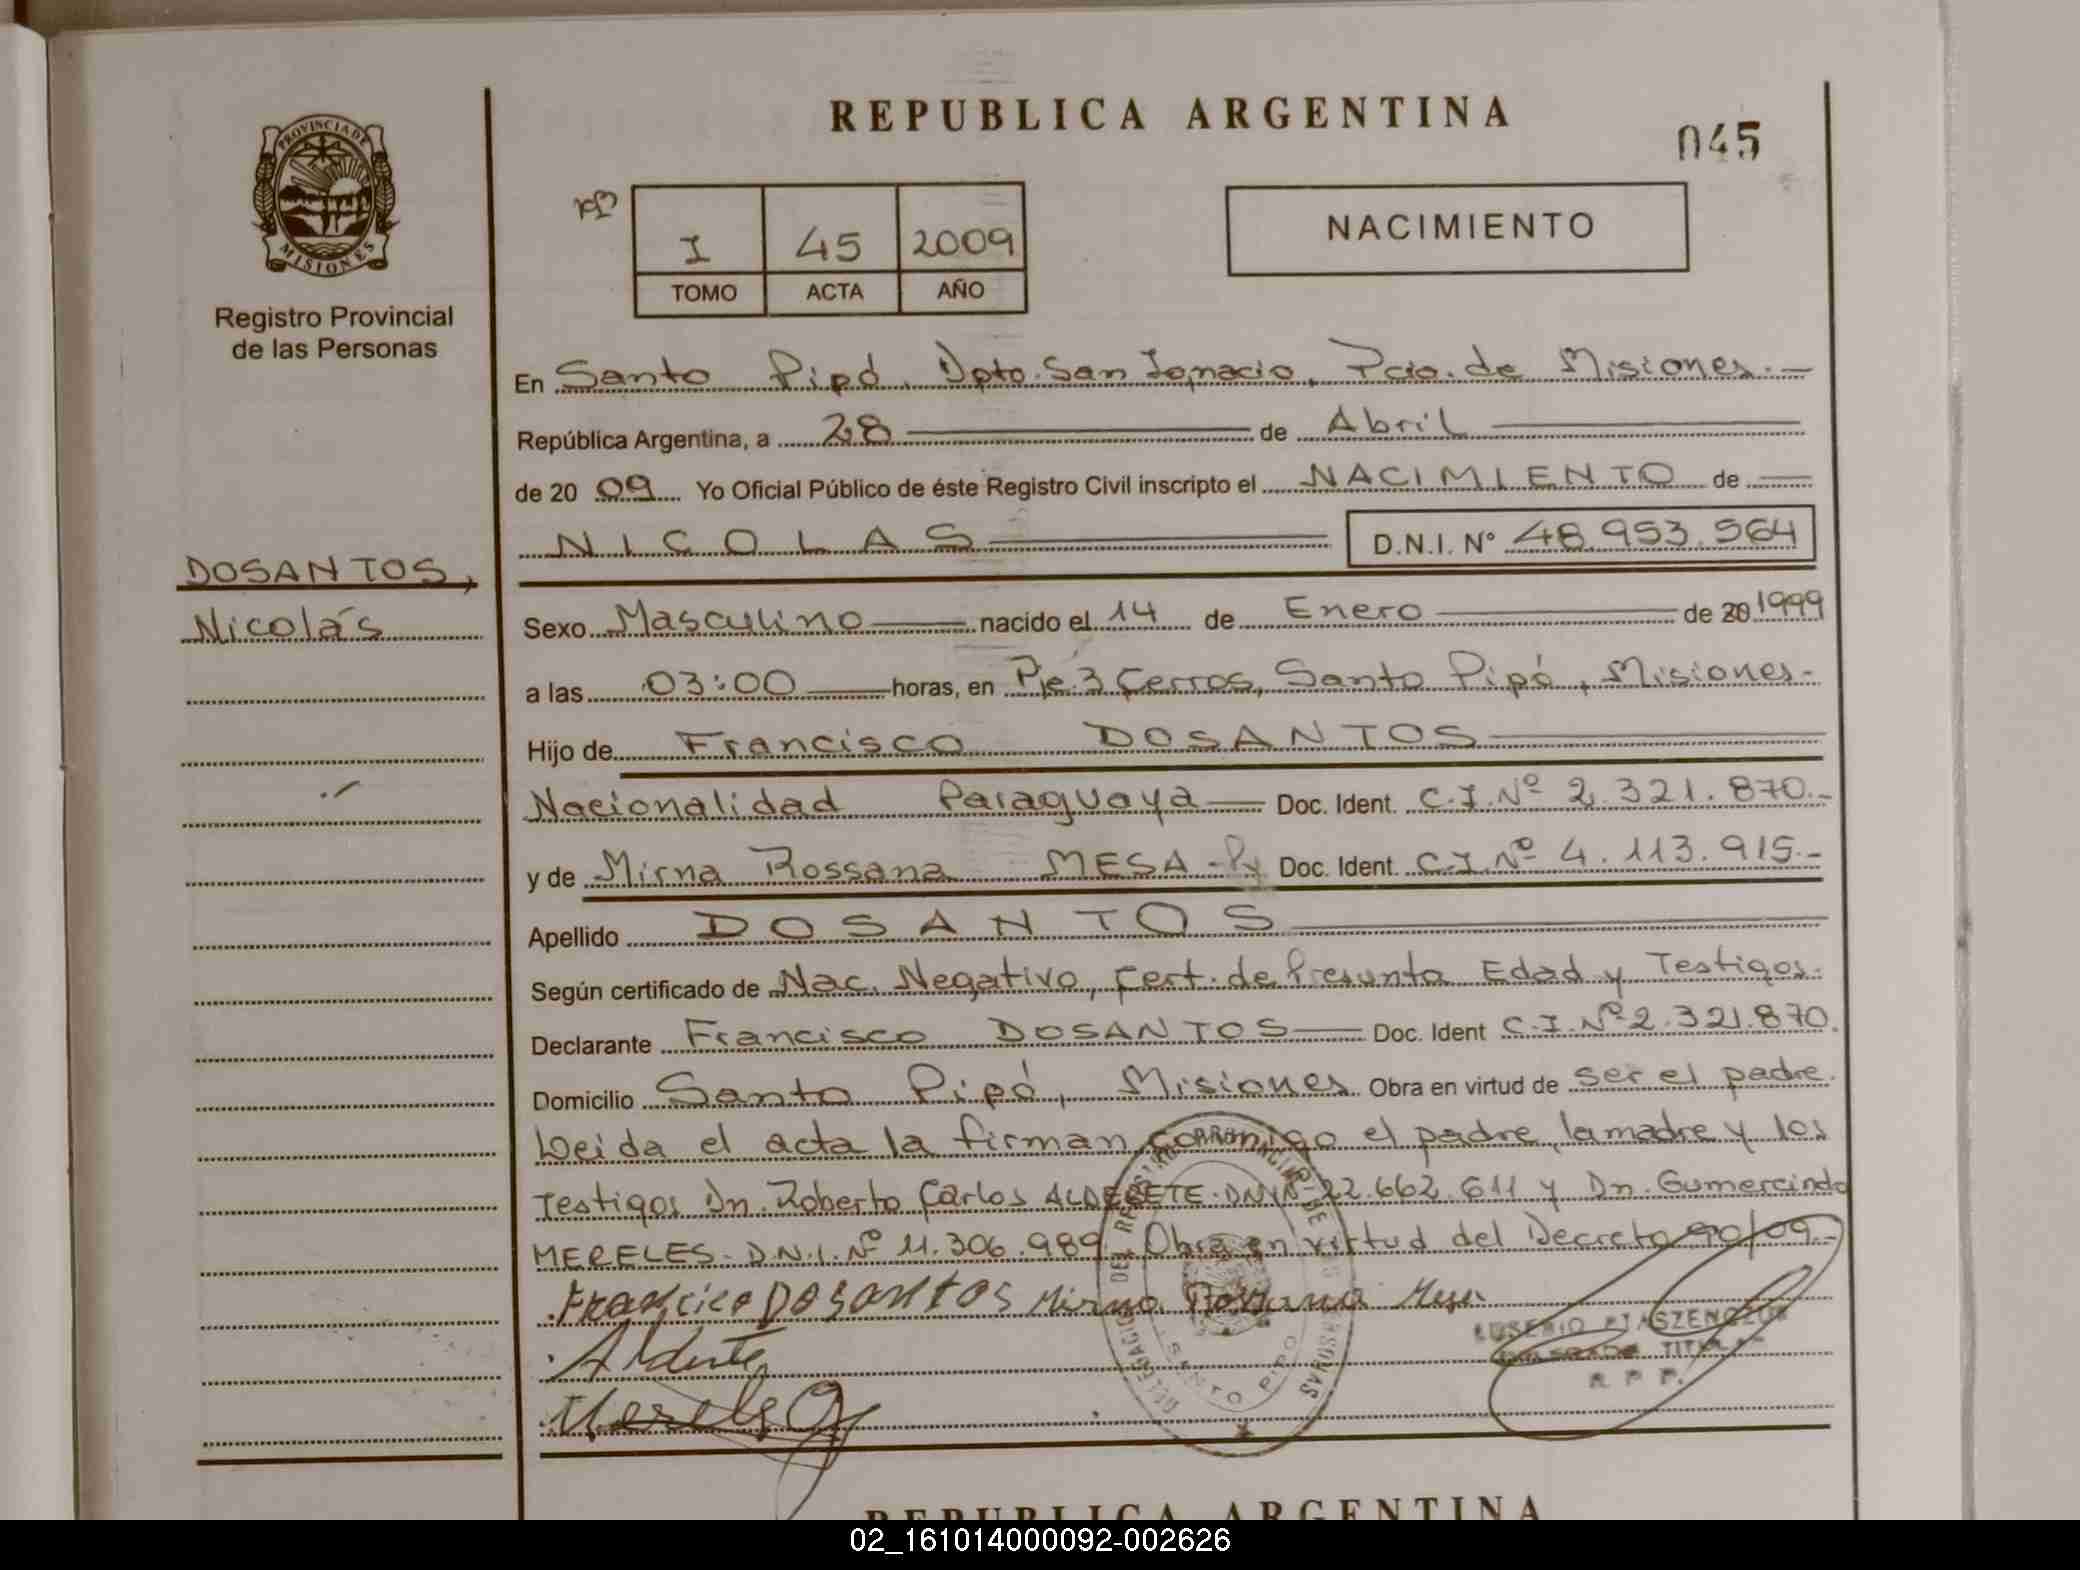 REPUBLICA ARGENTINA
045
PROVINCIA DE
MISIONES
Registro Provincial
de las Personas
I 45 2009
TOMO ACTA AÑO
NACIMIENTO
En Santo Pipó, Dpto. San Ignacio, Pcia. de Misiones.-
República Argentina, a 28 de Abril
de 20 09 Yo Oficial Público de éste Registro Civil inscripto el NACIMIENTO de
NICOLAS D.N.I. Nº 48.953.564
DOSANTOS,
Nicolás
Sexo Masculino nacido el 14 de Enero de 20 1999
a las 03:00 horas, en Pje. 3 Cerros, Santo Pipó, Misiones.-
Hijo de Francisco DOSANTOS
Nacionalidad Paraguaya Doc. Ident. C.I. Nº 2.321.870.-
y de Mirna Rossana MESA - Py Doc. Ident. C.I. Nº 4.113.915.-
Apellido DOSANTOS
Según certificado de Nac. Negativo, Cert. de Presunta Edad y Testigos.
Declarante Francisco DOSANTOS Doc. Ident C.I. Nº 2.321.870.
Domicilio Santo Pipó, Misiones Obra en virtud de ser el padre.
Leída el acta la firman conmigo el padre, la madre y los
Testigos Dn. Roberto Carlos ALDERETE. DNI Nº 22.662.611 y Dn. Gumercindo
MERELES. D.N.I. Nº 11.306.989. Obra en virtud del Decreto 90/09.-
Francisco DOSANTOS Mirna Rossana Mesa
EUSEBIO PTASZENCZUK
TITULAR
R P P.
Alderete
Mereles G
DELEGACION DEL REGISTRO PROVINCIAL DE LAS PERSONAS
SANTO PIPO
REPUBLICA ARGENTINA
02_161014000092-002626